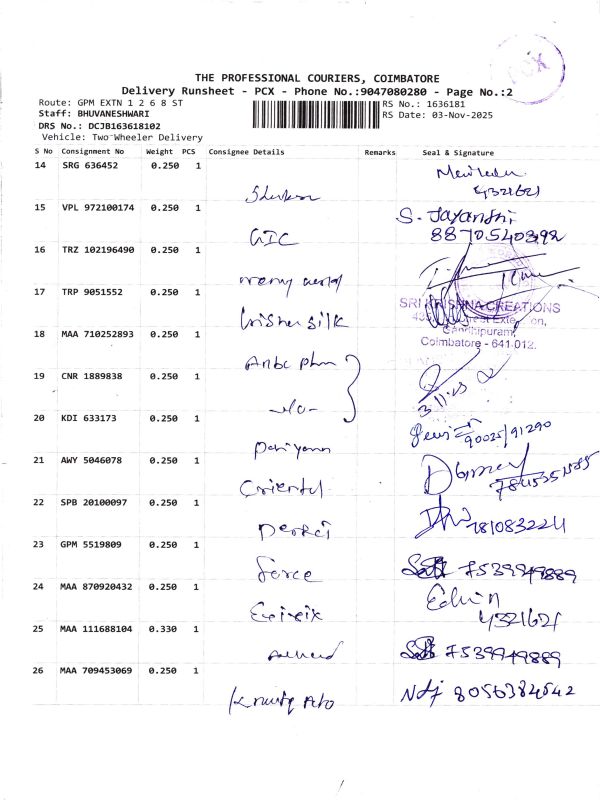 PCX
THE PROFESSIONAL COURIERS, COIMBATORE
Delivery Runsheet - PCX - Phone No.:9047080280 - Page No.:2
Route: GPM EXTN 1 2 6 8 ST
RS No.: 1636181
Staff: BHUVANESHWARI
RS Date: 03-Nov-2025
DRS No.: DCJB163618102
Vehicle: Two Wheeler Delivery
S No Consignment No Weight PCS Consignee Details Remarks Seal & Signature
14 SRG 636452 0.250 1
4321621
15 VPL 972100174 0.250 1 S. Jayanthi
GIC 8870540392
16 TRZ 102196490 0.250 1
17 TRP 9051552 0.250 1
SRI KRISHNA CREATIONS
Krishna silk
Gandhipuram,
Coimbatore - 641 012.
18 MAA 710252893 0.250 1
19 CNR 1889838 0.250 1
3/11/25
20 KDI 633173 0.250 1
90025/91290
21 AWY 5046078 0.250 1
Oriental
22 SPB 20100097 0.250 1
Perfect 7810832224
23 GPM 5519809 0.250 1
Force 7539949889
24 MAA 870920432 0.250 1 Edwin
4321621
25 MAA 111688104 0.330 1
7539949889
26 MAA 709453069 0.250 1
8056384542